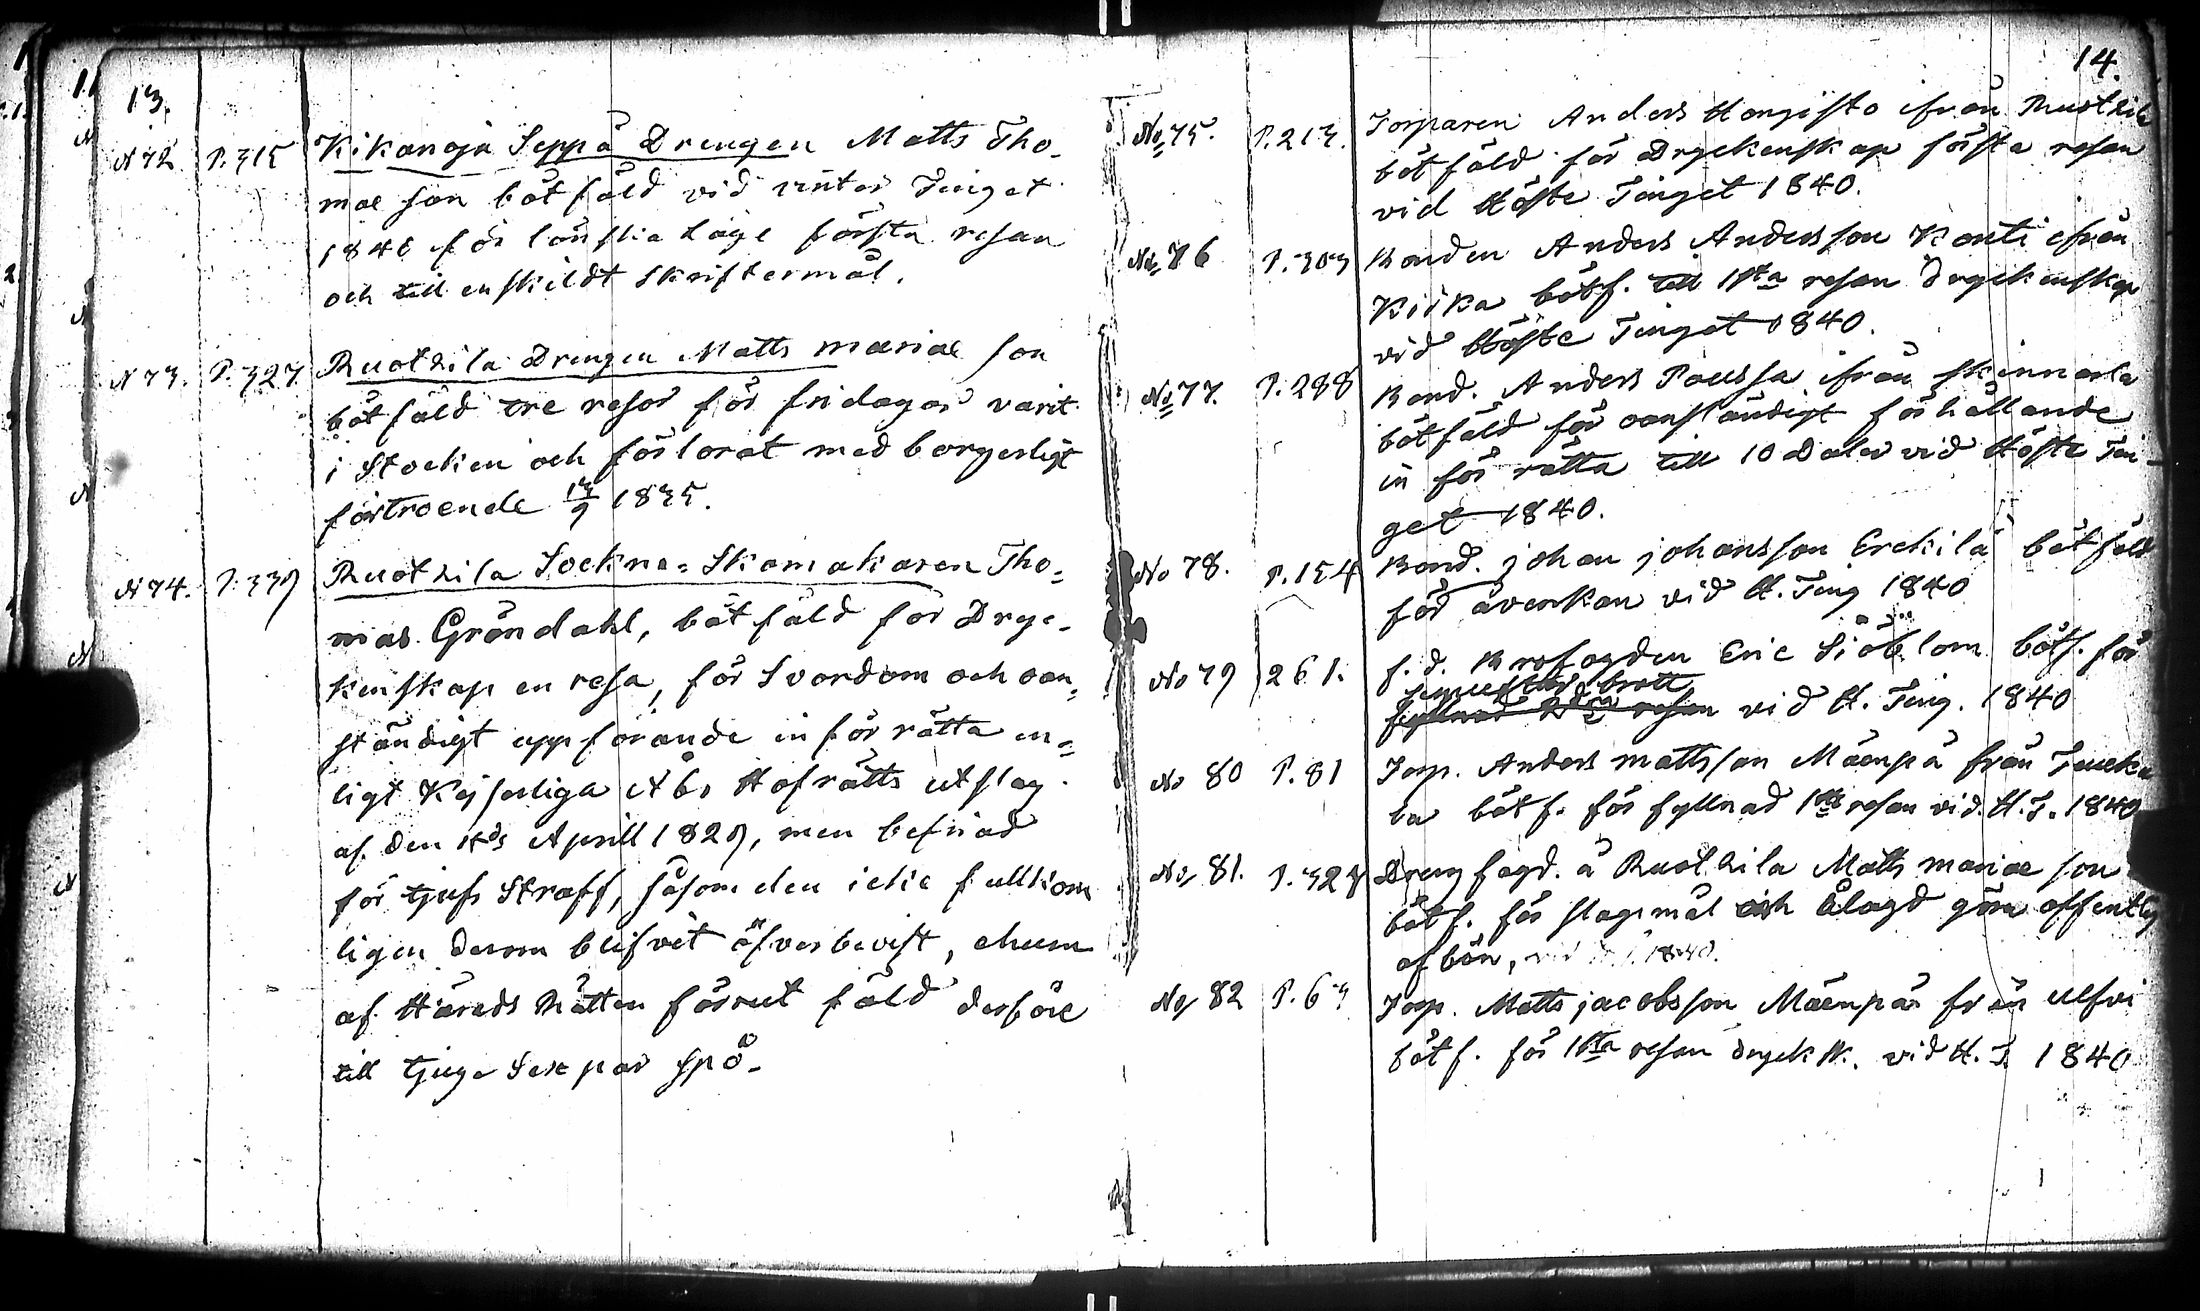 13.
N 72 P. 315 Kikanoja Seppä Drengen Matts Tho-
mae son bötfäld vid vinter Tinget
1840 för lönskaläge första resan
och till enskildt skriftermål.
N 73. P. 327. Ruotkila Drengen Matts mariae son
bötfäld tre resor för fridagar varit
i Stocken och förlorat med borgerligt
förtroende 13/9 1835.
N 74. P. 339 Ruotkila Sockne-Skomakaren Tho-
mas Gröndahl, bötfäld för Dryc-
kenskap en resa, för Svordom och oan-
ständigt uppförande inför rätta en-
ligt Kejserliga Åbo Hofrätts utslag
af den Aprill 1829, men befriad
för tjufs Straff, såsom den icke fullkom
ligen derom blifvit öfverbevist, ehuru
af Härads Rätten förrut fäld derföre
till tjuge Sex par spö.
14.
No 75. P. 213. Torparen Anders Hongisto ifrån Ruotkila
bötfäld för Dryckenskap första resan
vid Höste Tinget 1840.
No 76 P. 303 Bonden Anders Andersson Konti ifrån
Kiika bötf. till 1sta resan dryckenskap
vid Höste Tinget 1840.
No 77. P. 288 Bond. Anders Poussa ifrån Skinnarla
bötfäld för oanständigt förhållande
in för rätta till 10 Daler vid Höste Tin-
get 1840.
No 78. P. 154 Bond. johan johansson Erckilä bötfäld
för åverkan vid H. Ting 1840
No 79 261. f. d. Krofogden Eric Siöblom bötf. för
brott
fyllnad 2dra resan vid H. Ting. 1840
No 80 P. 81 Torp. Anders mattsson Mäenpä från
la bötf. för fyllnad 1sta resan vid. H. T. 1840
No 81. P. 327 Dreng fogd. å Ruotkila Matts mariae son
bötf. för slagsmål och Ålagd göra offentlig
afbön, vid 1840.
No 82 P. 63 Torp. Matts jacobsson Mäenpää från Ulfvi
bötf. för 1sta resan dryck sk. vid H. T. 1840